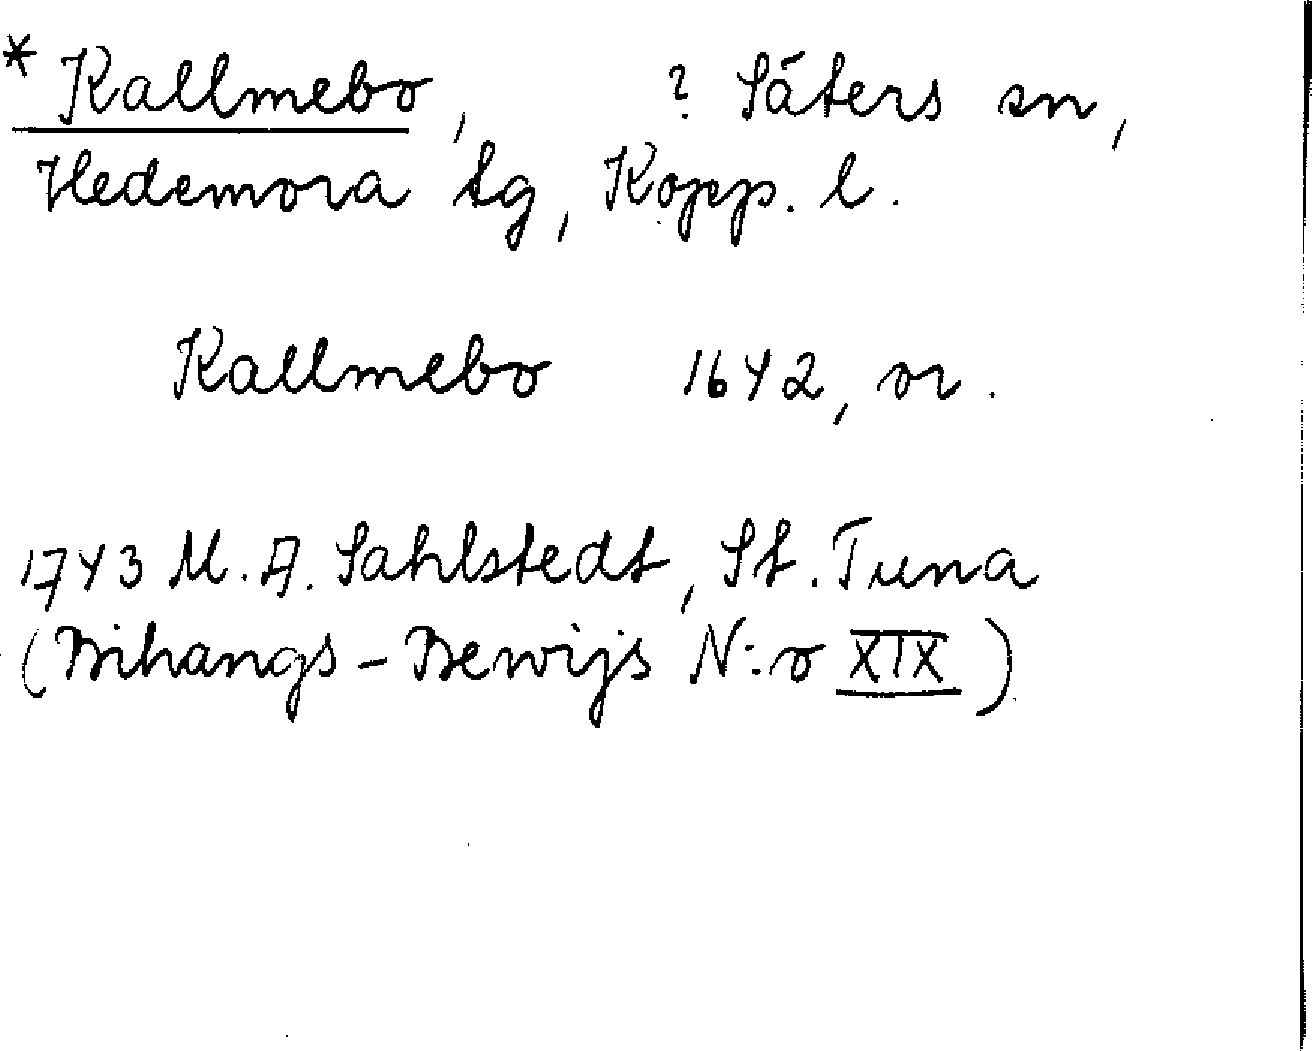 * Kallmebo, ? Säters sn,
Hedemora tg, Kopp. l.
Kallmebo 1642, or.
1743 M. A. Sahlstedt, St. Tuna
(Bihangs-Bewijs N:o XIX)